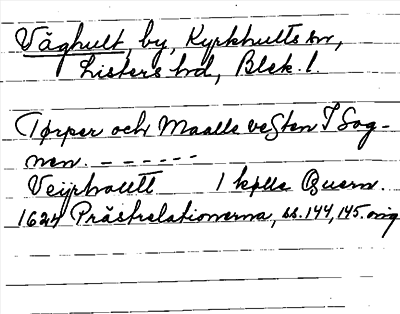 Våghult, by, Kyrkhults sn,
Listers hd, Blek. l.
Tørper och Maalle vesten I Sog-
nen. - - - - - -
Veijrhoultt 1 kølle Quern.
1624 Prästrelationerna, ss. 144, 145. orig